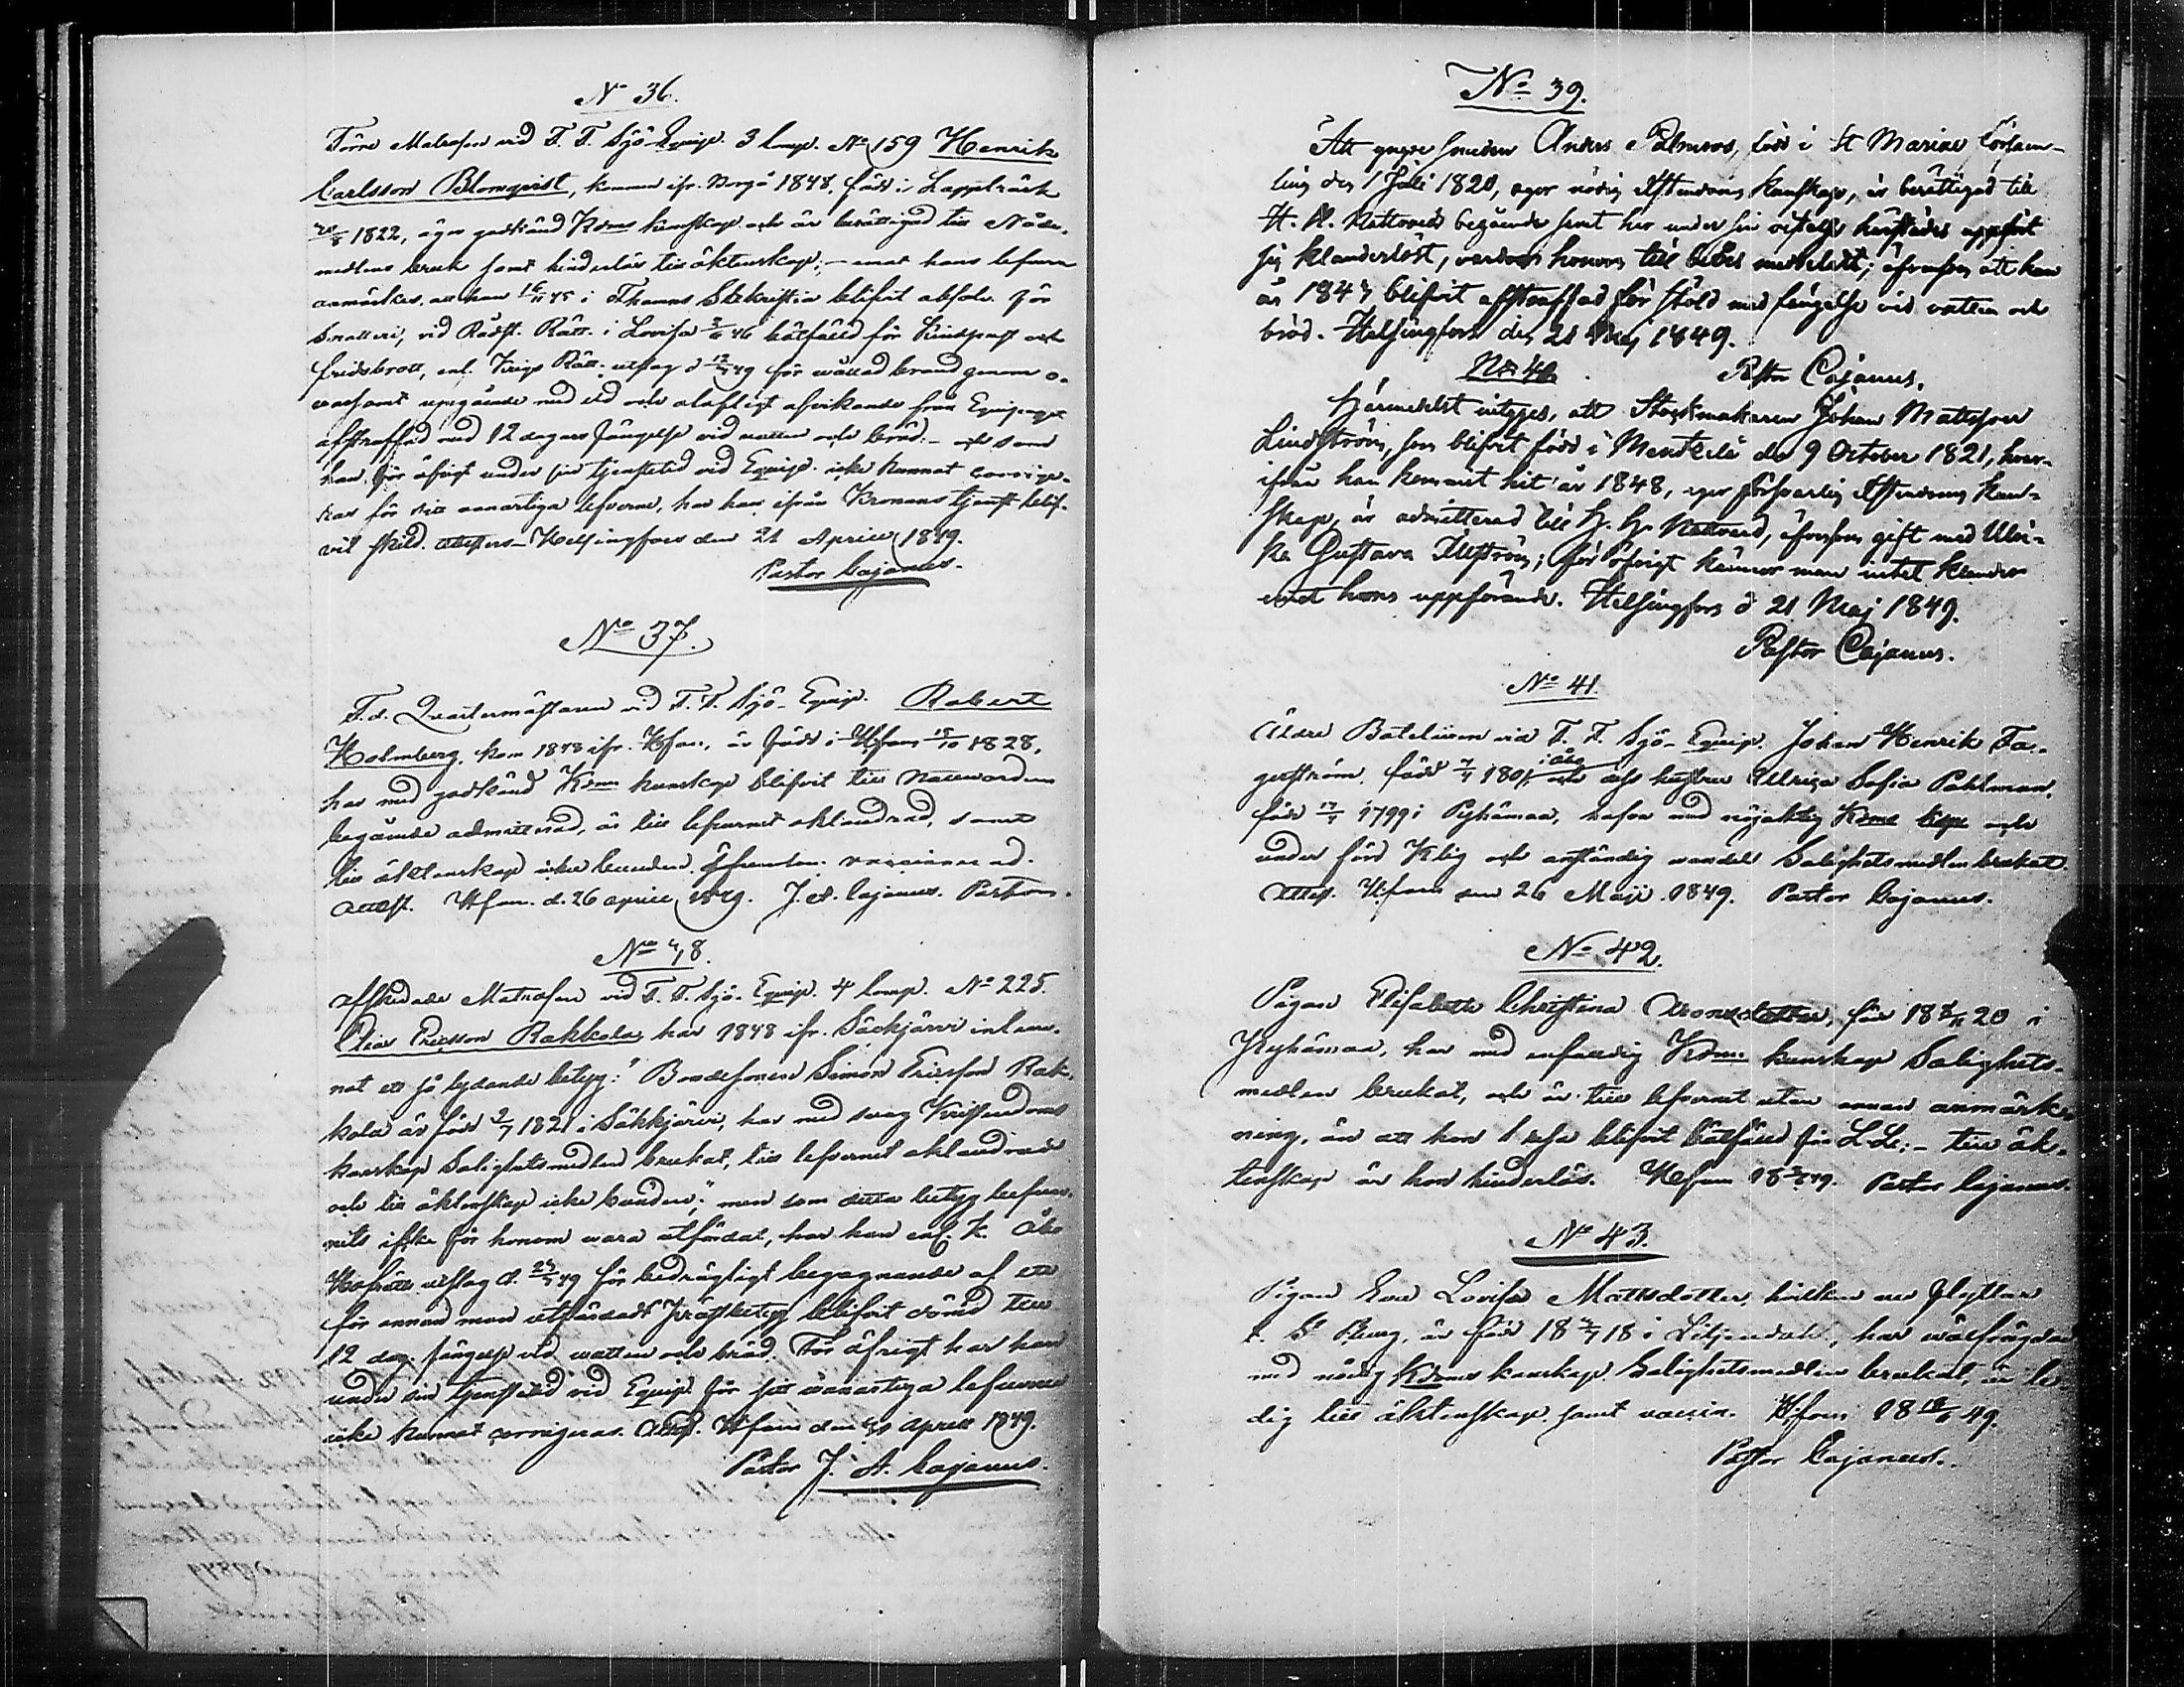 No 36.
Förre Matrosen vid F. F. Sjö-Equip. 3 Comp. No 159 Henrik
Carlsson Blomqvist, kommen ifr. Borgå 1848, född i Lappträsk
1822, äger godkänd Kdms kunskap och är berättigad till Nåde-
medlens bruk samt hinderlös till äktenskap; – emot hans lefverne
anmärkes, att han 16/11 45 i Thamns Sakristia blifvit absolv. för
snatteri, vid Rådst. Rätt i Lovisa 46 bötfälld för
fridsbrott, enl. Krigs Rätt. utslag d 49 för vållad brand genom o-
varsamt umgående med eld och olofligt afvikande från Equipaget
afstraffad med 12 dagars fängelse vid vatten och bröd – och som
han för öfrigt under sin tjenstetid vid Equip. icke kunnat corrige-
ras för sitt vanartiga lefverne, har han ifrån Kronans tjenst blif-
vit skild. Attesteras – Helsingfors den 21 Aprill 1849.
Pastor Cajanus.
No 37.
F.d. Quartermästaren vid F. F. Sjö-Equip. Robert
Holmberg, kom 1848 ifr. Hfors, är född i Hfors 1828,
har med godkänd Kdms kunskap blifvit till Nattvardens
begående admitterad, är till lefvernet oklandrad, samt
till äktenskap icke bunden, äfvensom vaccinerad.
Attest. Hfors. d. 26 aprill 1849. J. A. Cajanus. Pastor.
No 38.
Afskedade Matrosen vid F. F. Sjö-Equip. 4 Comp. No 225.
Elias Ericsson Rakkola, har 1848 ifr. Säckjärvi inläm-
nat ett så lydande betyg: "Bondesonen Simon Ericsson Rak-
kola är född 2/7 1821 i Säkkjärvi, har med svag Kristendoms
kunskap Salighetsmedlen brukat, till lefvernet oklandrad
och till äktenskap icke bunden," men som detta betyg befun-
nits icke för honom vara utfärdat, har han enl. K. Åbo
Hofrätts utslag d. 49 för bedrägligt begagnande af ett
för annan man utfärdadt Prästbetyg blifvit dömd till
12 dag. fängelse vid vatten och bröd. För öfrigt har han
under sin tjenstetid vid Equip. för sitt vanartiga lefverne
icke kunnat corrigeras. Attest. Hfors den 30 Aprill 1849.
Pastor J. A. Cajanus.
No 39.
Att yngre Smeden Anders Palmroos, född i St Mariae Församl-
ling den 1 Juli 1820, eger nödig Christendoms Kunskap, är berättigad till
H. H. Nattvards begående samt har under sin vistelse härstädes uppfört
sig klanderlöst, varder honom till bevis meddeladt; äfvensom att han
år 1847 blifvit afstraffad för stöld med fängelse vid vatten och
bröd. Helsingfors den 21 Maj 1849.
Pastor Cajanus.
No 40.
Härmedelst intyges, att Stockmakaren Johan Mattsson
Lindström, som blifvit född i Mentzelä den 9 October 1821, hvar-
ifrån han kommit hit år 1848, eger försvarlig Christendoms Kun-
skap, är admitterad till H. H. Nattvard, äfvensom gift med Ulri-
ka Gustava Illström; för öfrigt känner man intet klander
emot hans uppförande. Helsingfors d 21 Maj 1849.
Pastor Cajanus.
No 41.
Äldre Batelieren vid F. F. Sjö-Equip. Johan Henrik Fa-
gerström, född 1801 i Åbo och dess hustru Ulrica Sofia Pahlman,
född 1799 i Pyhämaa, hafva med nöjaktig Kdms kskp och
under förd Klig och anständig vandel Salighetsmedlen brukat.
Attest. Hfors den 26 Maji 1849. Pastor Cajanus.
No 42.
Pigan Elisabeth Christina Aronsdotter, född 18 20 i
Pyhämaa, har med enfaldig Kdms kunskap Salighets-
medlen brukat, och är till lefvernet utan annan anmärk-
ning, än att hon 1 resa blifvit bötfälld för L.L: – till äk-
tenskap är hon hinderlös. Hfors 18 49. Pastor Cajanus.
No 43.
Pigan Eva Lovisa Mattsdotter, hvilken nu flyttar
t. St Pburg, är född 18 18 i Liljendahl, har välfrejdad
med nödig Kdoms kunskap Salighetsmedlen brukat, är le-
dig till äktenskap samt vaccin. Hfors 18 49.
Pastor Cajanus.